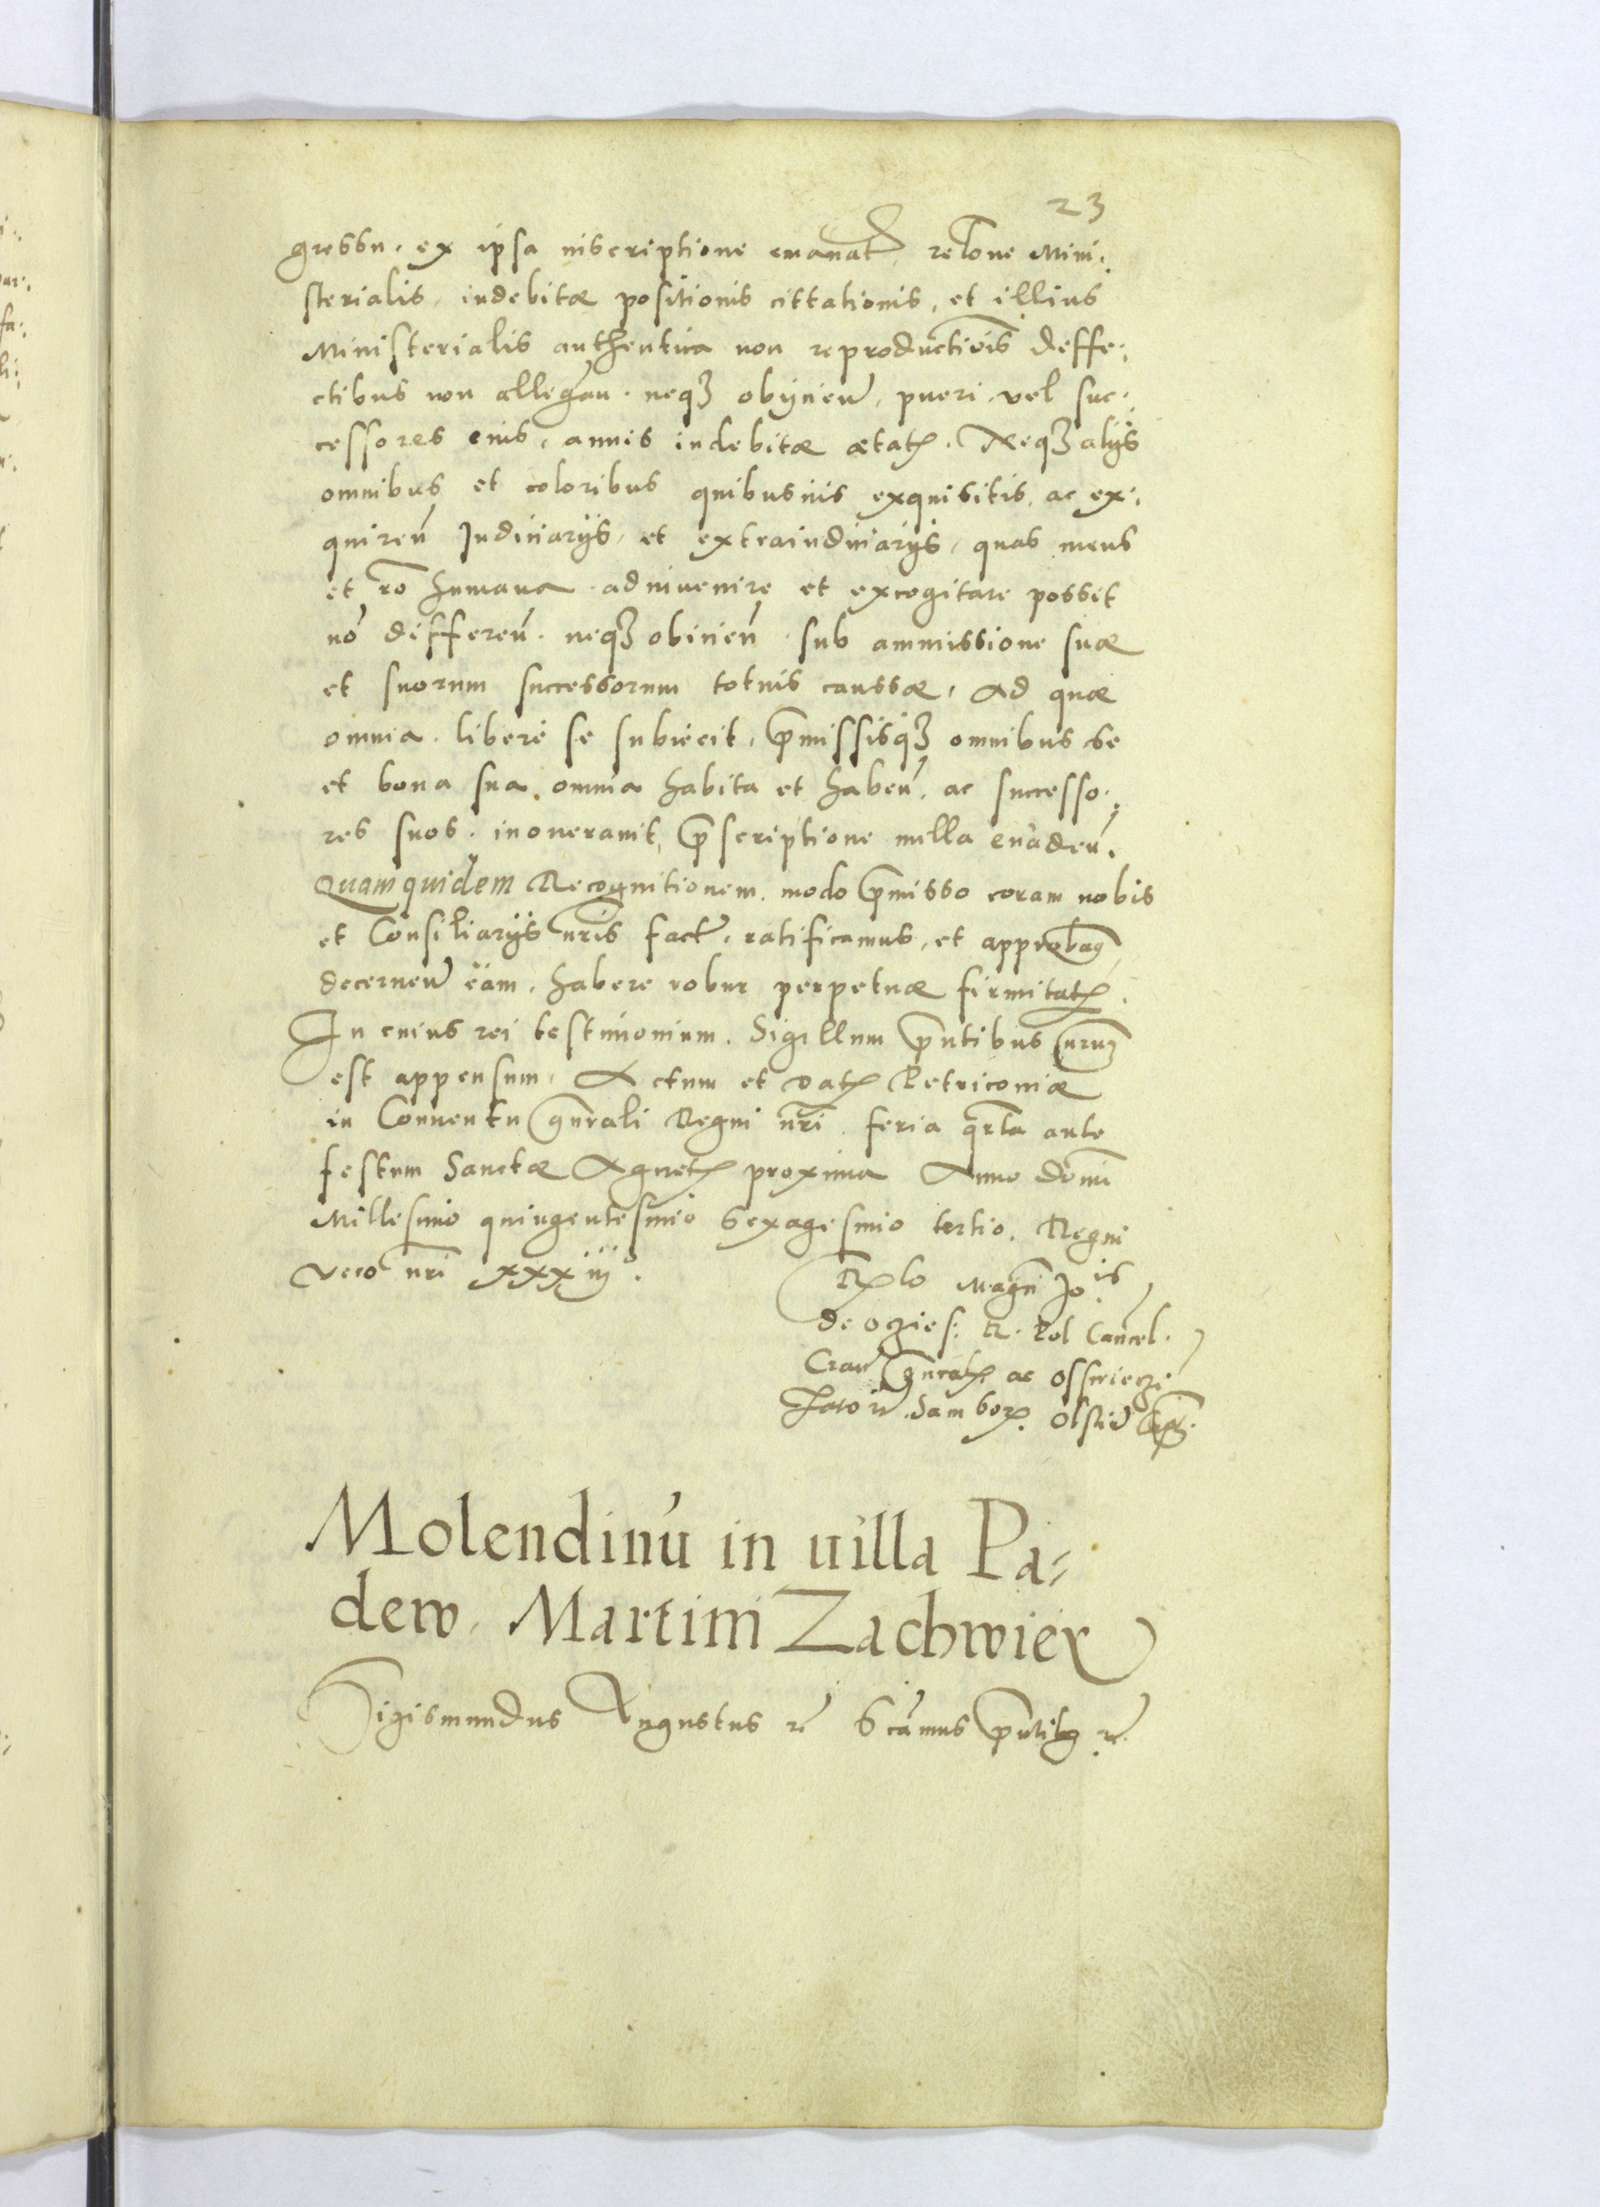 23
gressu. ex ipsa inscriptione emanat relōne Mini:
sterialis, indebitæ positionis cittationis, et illius
Ministerialis authentica non reproductiōis deffe:
ctibus non allegan̄. neqꝫ obijcien̄, pueri vel suc:
cessores eius, annis indebitæ ætatꝭ. Neqꝫ alijs
omnibus et coloribus quibusuis exquisitis ac ex:
quiren̄ Iudiciarijs, et extraiudiciarijs, quas mens
et rō humana adinuenire et excogitare posset
nō differen̄. neqꝫ obicien̄ sub ammissione suæ
et suorum successorum totius caussæ, Ad quæ
omnia libere se subiecit, p̄missisqꝫ omnibus se
et bona sua omnia habita et haben̄. ac successo:
res suos inonerauit, p̄scriptione nulla euaden̄.
Quam quidem Recognitionem modo p̄misso coram nobis
et Consiliarijs nr̄is fact, ratificamus, et approbam̄
decernen̄ eam, habere robur perpetuæ firmitatꝭ.
In cuius rei testimonium. Sigillum p̄ntibus nrum̄
est appensum, Actum et datꝭ Petricouiæ
in Conuentu gn̄rali Regni nr̄i feria qr̄ta ante
festum Sanctæ Agnetꝭ proxima Anno dōni
Millesimo quingentesimo Sexagesimo tertio. Regni
vero nr̄i xxxiiij°.
Rꝭlo Magn̄i Jo is
de oczies: R. Pol Cancel.
Crac gn̄ralꝭ ac osswieczi
Zatorien̄ Samborꝭ. Olstin̄
Molendinū in uilla Pa=
dew. Martini Zachwiey
Sigismundus Augustus rē Scamus p̄ntibꝫ rē